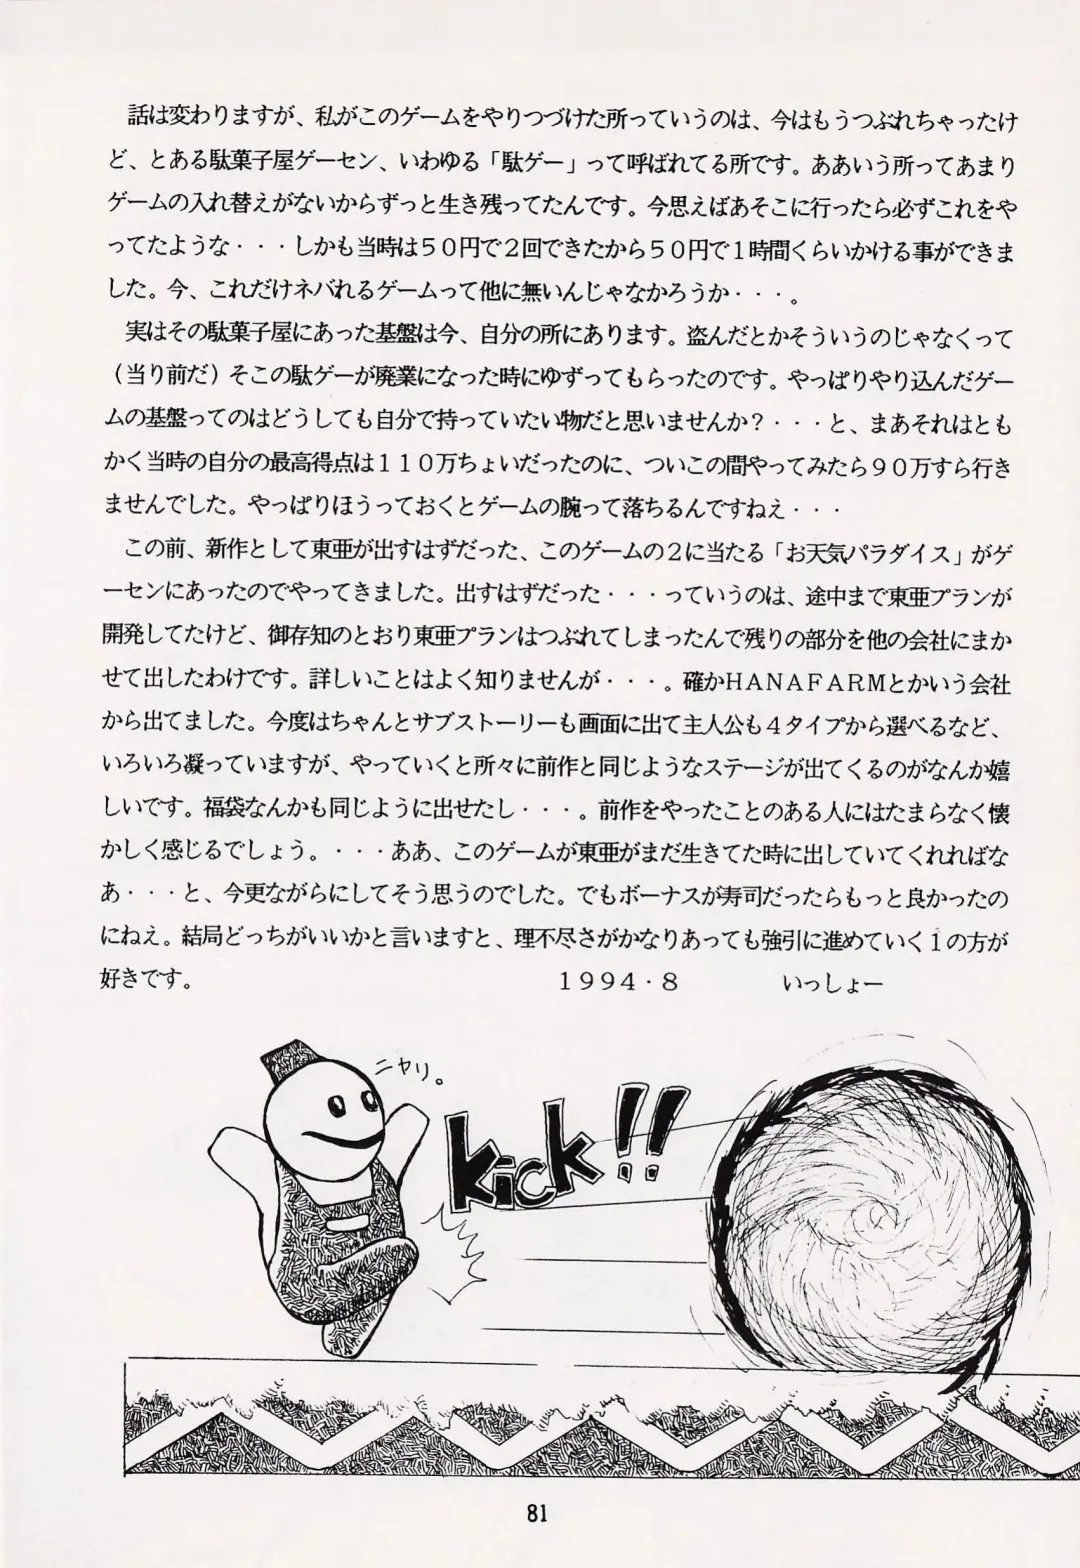 話は変わりますが、私がこのゲームをやりつづけた所っていうのは、今はもうつぶれちゃったけ
ど、とある駄菓子屋ゲーセン、いわゆる「駄ゲー」って呼ばれてる所です。ああいう所ってあまり
ゲームの入れ替えがないからずっと生き残ってたんです。今思えばあそこに行ったら必ずこれをや
ってたような・・・しかも当時は５０円で２回できたから５０円で１時間くらいかける事ができま
した。今、これだけネバれるゲームって他に無いんじゃなかろうか・・・。
実はその駄菓子屋にあった基盤は今、自分の所にあります。盗んだとかそういうのじゃなくって
（当り前だ）そこの駄ゲーが廃業になった時にゆずってもらったのです。やっぱりやり込んだゲー
ムの基盤ってのはどうしても自分で持っていたい物だと思いませんか？・・・と、まあそれはとも
かく当時の自分の最高得点は１１０万ちょいだったのに、ついこの間やってみたら９０万すら行き
ませんでした。やっぱりほうっておくとゲームの腕って落ちるんですねえ・・・
この前、新作として東亜が出すはずだった、このゲームの２に当たる「お天気パラダイス」がゲ
ーセンにあったのでやってきました。出すはずだった・・・っていうのは、途中まで東亜プランが
開発してたけど、御存知のとおり東亜プランはつぶれてしまったんで残りの部分を他の会社にまか
せて出したわけです。詳しいことはよく知りませんが・・・。確かＨＡＮＡＦＡＲＭとかいう会社
から出てました。今度はちゃんとサブストーリーも画面に出て主人公も４タイプから選べるなど、
いろいろ凝っていますが、やっていくと所々に前作と同じようなステージが出てくるのがなんか嬉
しいです。福袋なんかも同じように出せたし・・・。前作をやったことのある人にはたまらなく懐
かしく感じるでしょう。・・・ああ、このゲームが東亜がまだ生きてた時に出していてくれればな
あ・・・と、今更ながらにしてそう思うのでした。でもボーナスが寿司だったらもっと良かったの
にねえ。結局どっちがいいかと言いますと、理不尽さがかなりあっても強引に進めていく１の方が
好きです。　１９９４・８　いっしょー
ニヤリ。
kick!!
81